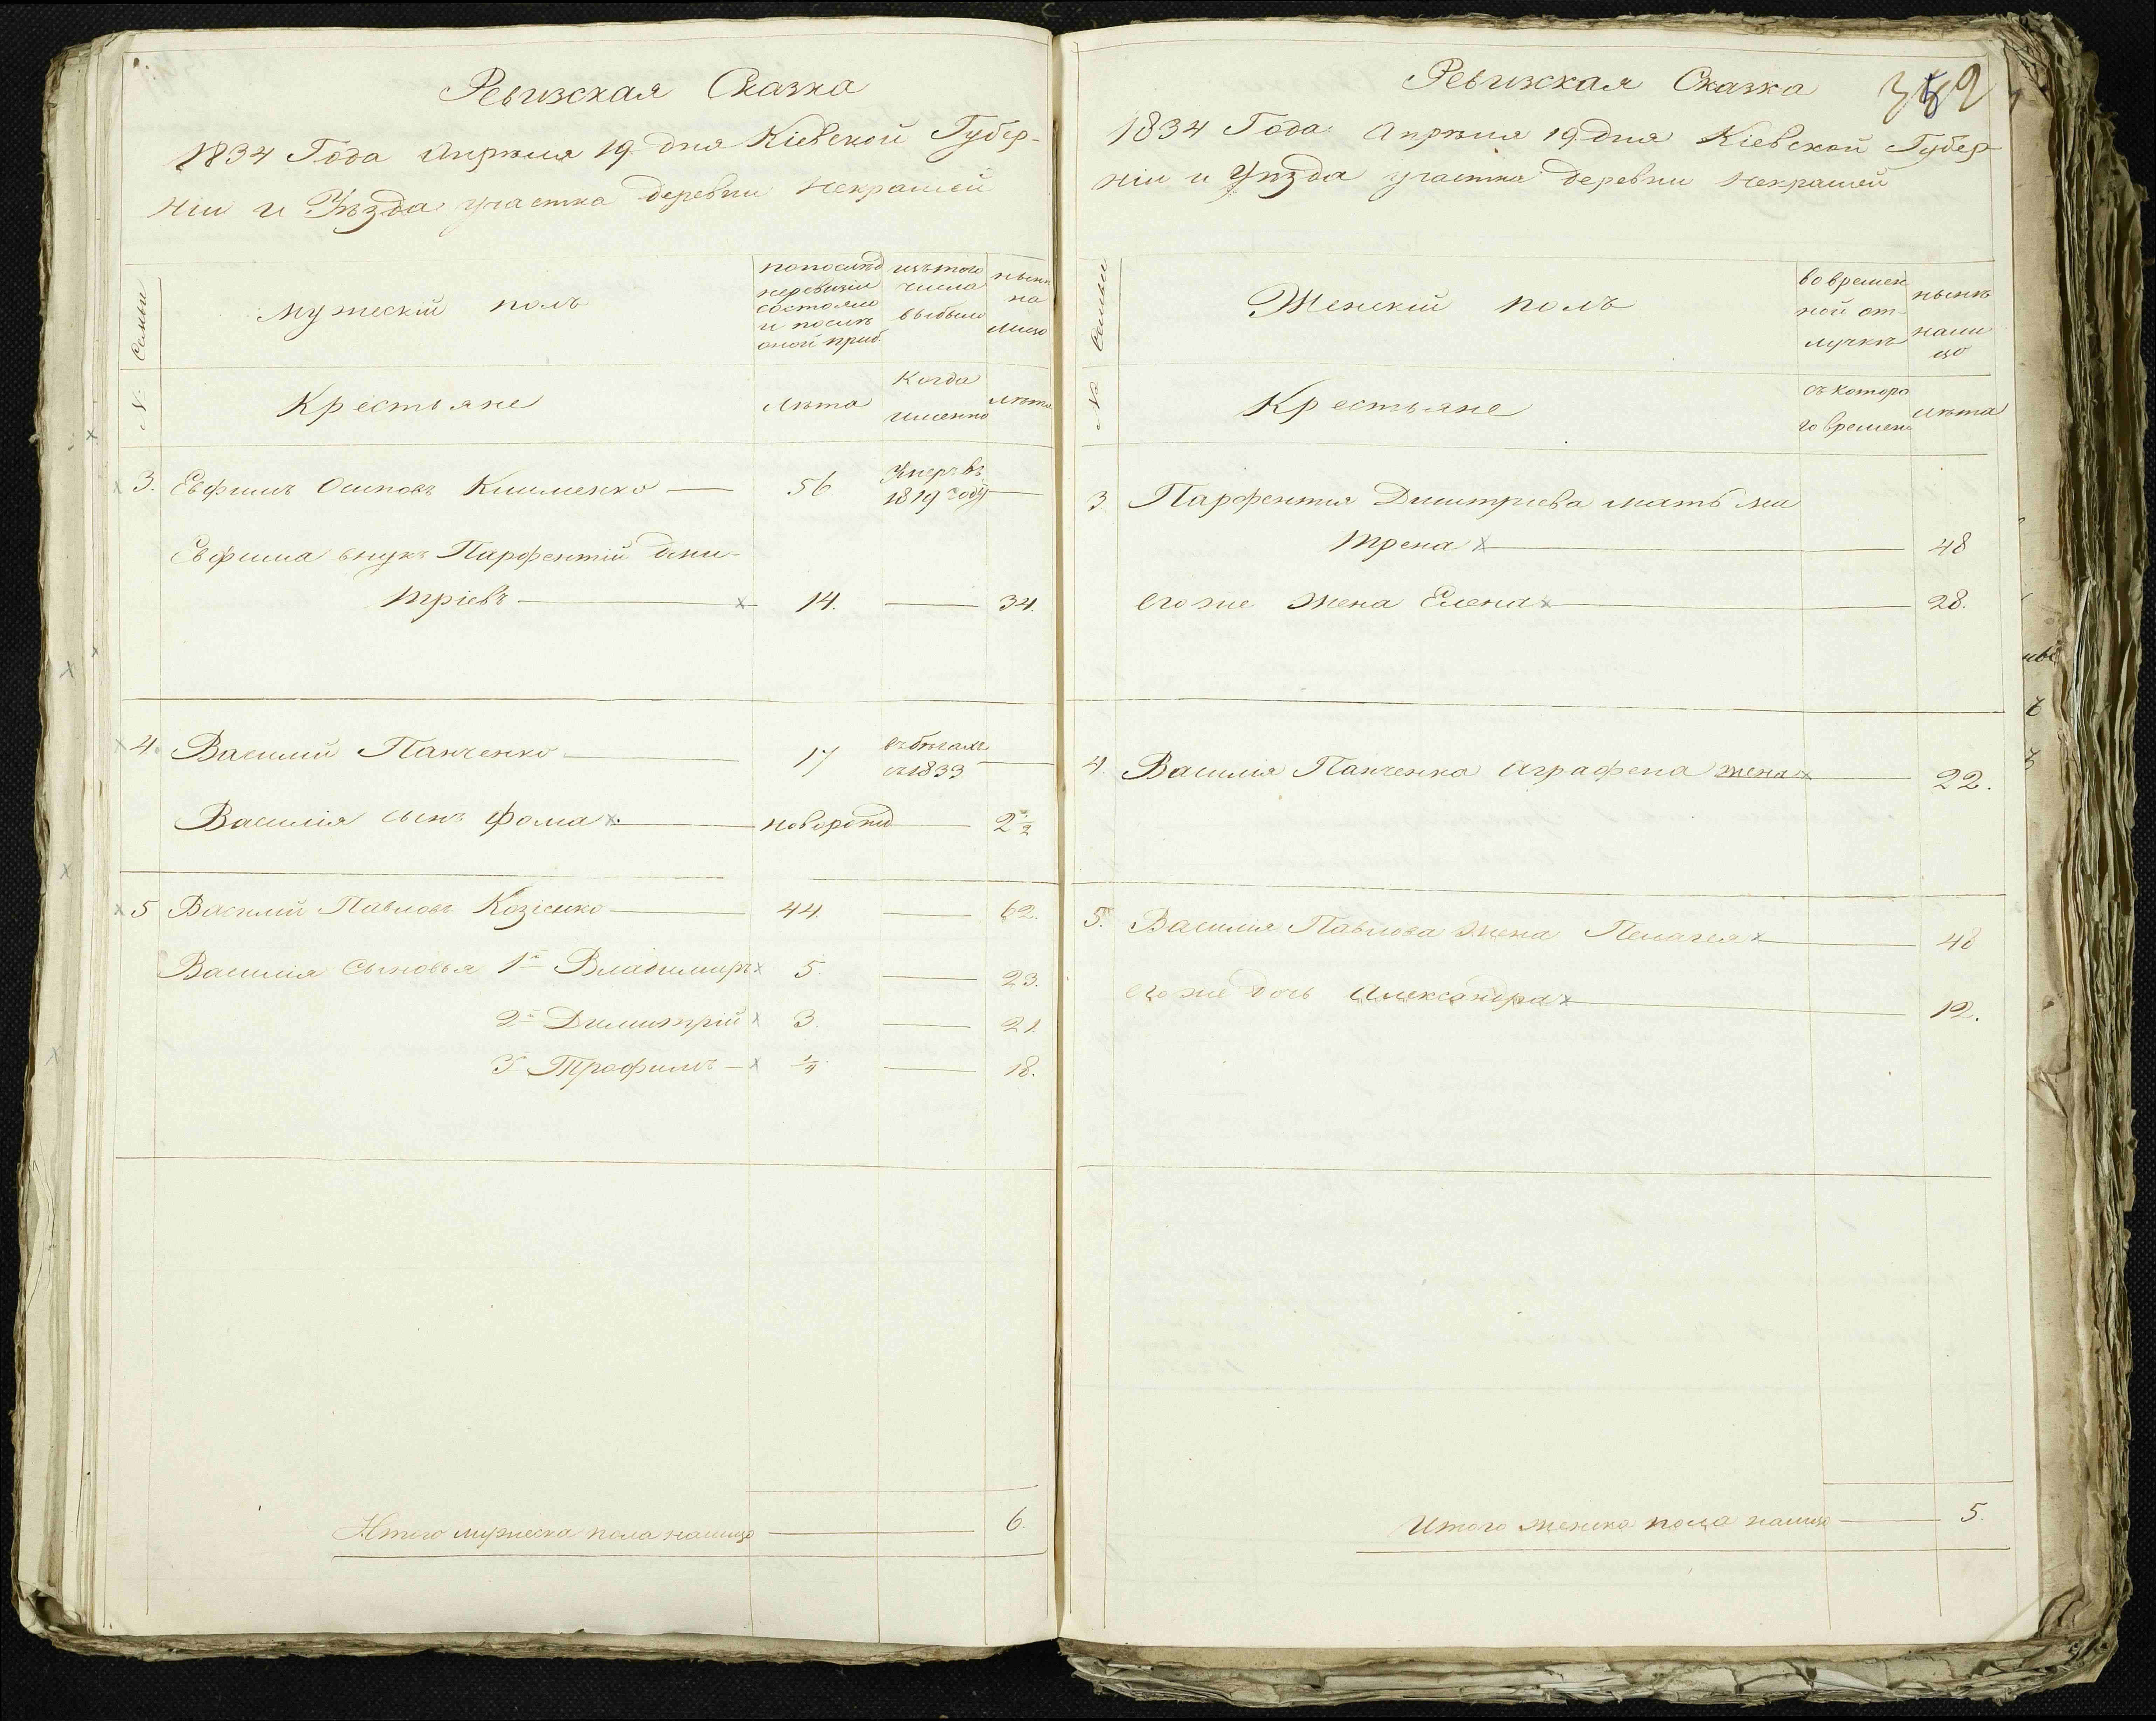 Ревизская Сказка
1834 Года Апрѣля 19 дня Кіевской Губер-
ніи и Уѣзда участка деревни Некрашей
№ Семьи
Мужескій полъ
по послѣд
ней ревизіи
состояло
и послѣ
оной приб.
изъ того
числа
выбыло
нынѣ
на
лицо
Крестьяне
Лѣта
Когда
именно
Лѣта
3. Евфимъ Осиповъ Клименко — 56 Умеръ въ
1819 году —
Евфима внукъ Парфентій Дми-
тріевъ — x 14. — 34.
x 4. Василий Панченко — 17 въ бѣгахъ
съ 1833 —
Василія сынъ Фома x — новорожд — 2 1/2
x 5 Василий Павловъ Козіенко — 44 — 62.
Василія Сыновья 1й Владимиръ x 5. — 23.
2й Димитрій x 3. — 21.
3й Трофимъ — x 1/4 — 18.
Итого мужеска пола налицо — 6.
Ревизская Сказка
1834 Года Апрѣля 19 дня Кіевской Губер-
ніи и Уѣзда участка деревни Некрашей
№ Семьи
Женскій полъ
во времен
ной от-
лучкѣ
нынѣ
нали
цо
Крестьяне
съ которо
го времени
Лѣта
3 Парфентия Дмитриева мать Ма
трена x — 48
его же жена Елена x — 28.
4. Василія Панченка Аграфена жена x — 22.
5. Василия Павлова жена Пелагея x — 48
его же дочь Александра x — 12.
Итого женска пола налицо — 5.